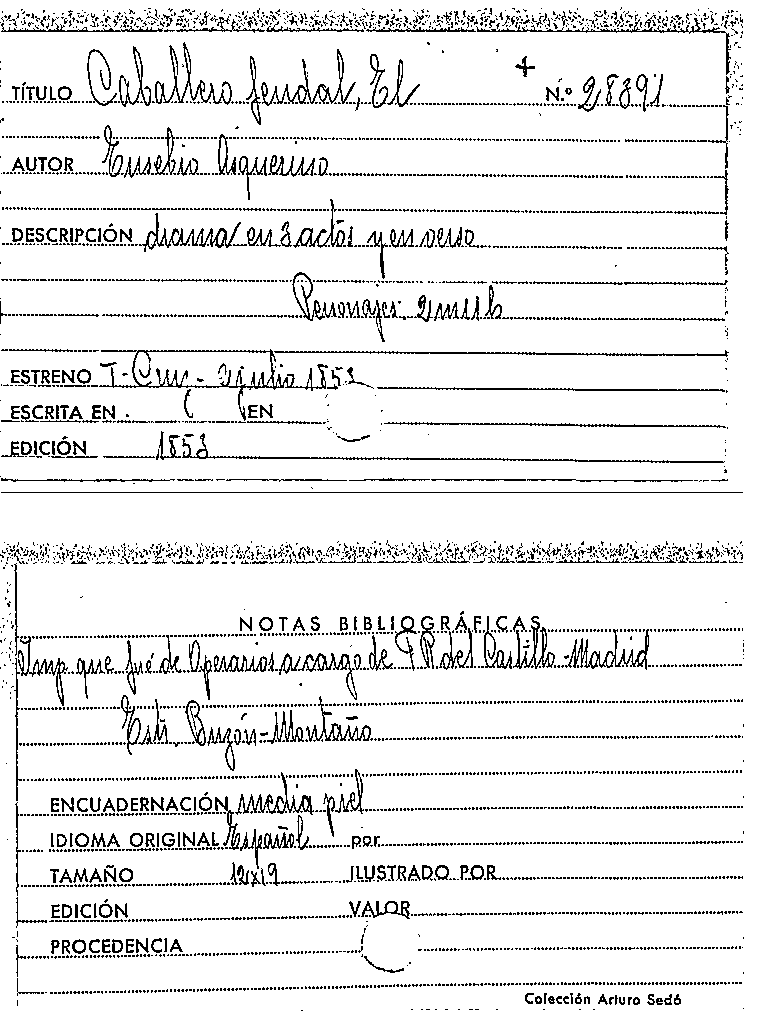 TÍTULO Caballero feudal, El + N.º 28391
AUTOR Eusebio Asquerino
DESCRIPCIÓN drama en 3 actos y en verso
Personajes: 2 m 11 h
ESTRENO T. Cruz - 2 julio 1853
ESCRITA EN . EN
EDICIÓN 1853
NOTAS BIBLIOGRÁFICAS
Imp que fué de Operarios a cargo de F R del Castillo - Madrid
Estr. Buzón-Montaño
ENCUADERNACIÓN media piel
IDIOMA ORIGINAL Español por
TAMAÑO 12x19 ILUSTRADO POR
EDICIÓN VALOR
PROCEDENCIA
Colección Arturo Sedó